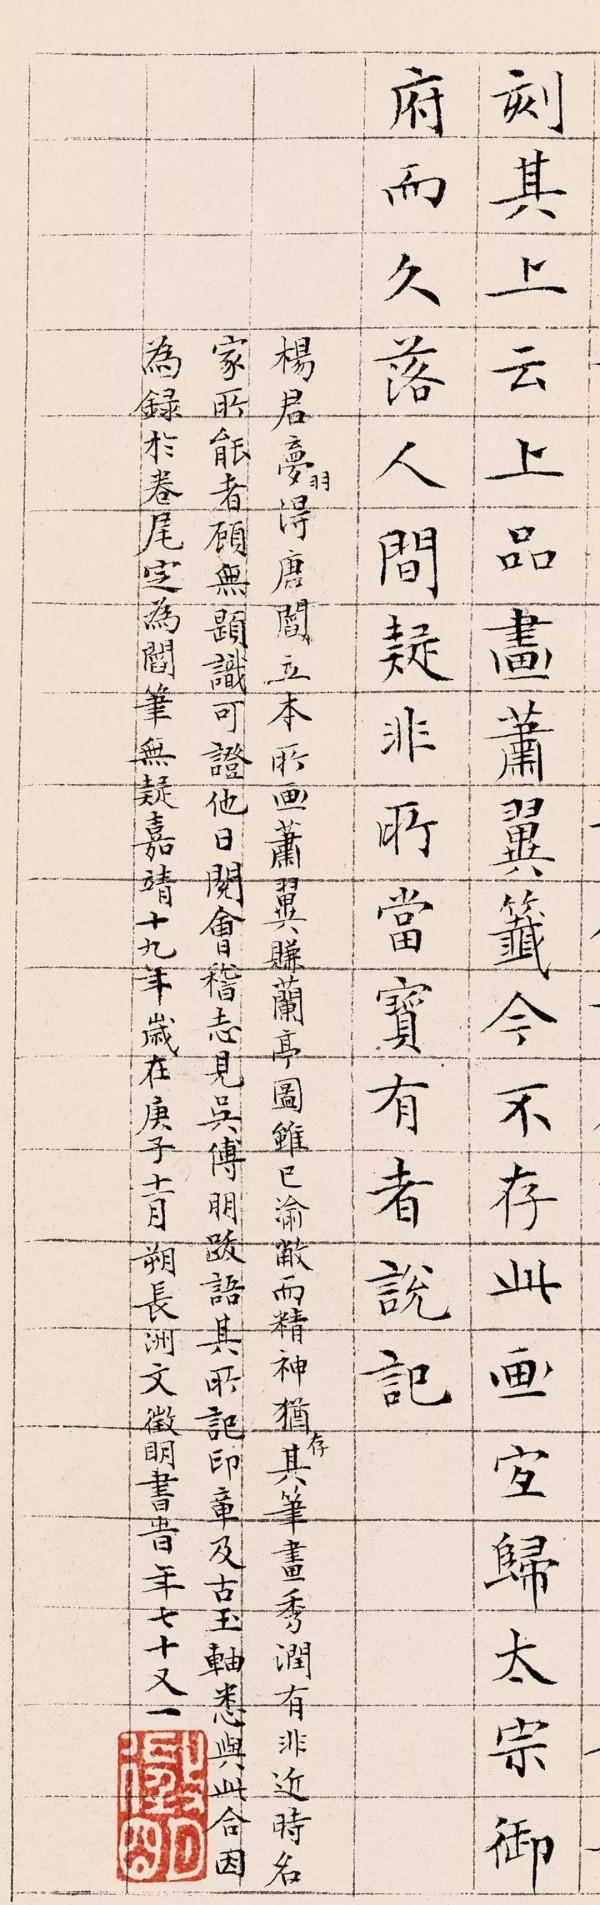 刻其上云上品畫蕭翼籤今不存此画宜歸太宗御
府而久落人間疑非所當寶有者說記
楊君夢羽得唐閻立本所画蕭翼賺蘭亭圖雖已渝敝而精神猶存其筆畫秀潤有非近時名
家所能者顧無題識可證他日閱會稽志見吳傅朋跋語其所記印章及古玉軸悉與此合因
為錄於卷尾定為閻筆無疑嘉靖十九年歲在庚子十二月朔長洲文徵明書眚年七十又一
徵明